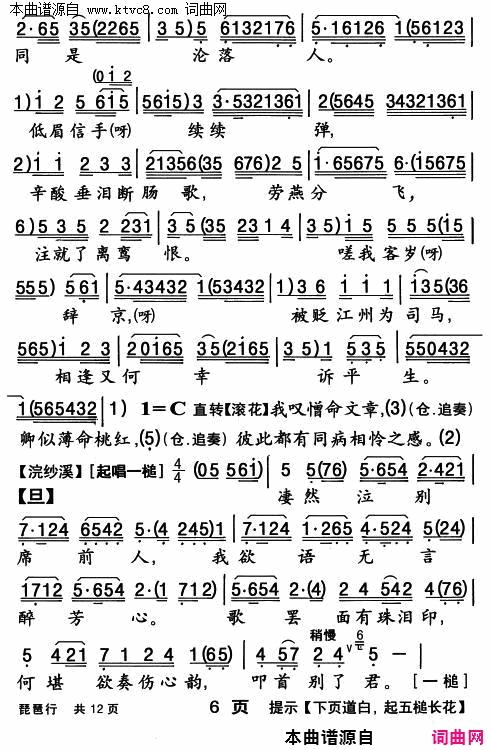 本曲谱源自 www.ktvc8.com 词曲网
2·65 35(2265 | 35)5 6132176 | 5·16126 1(56123
同是 沦落 人。
(0i2
1)i2 56i5 | 5615)3 3·5321361 | 2(5645 34321361
低眉信手(呀) 续续 弹,
2)ii 233 | 21356(35 676)25 | i·65675 6·(i5675
辛酸垂泪断肠歌, 劳燕分飞,
6)535 2231 | 35(35 231276 | 5)i35 555(i5
注就了离鸾恨。 嗟我客岁(呀)
555)561 | 5·43432 1(543432 | 1)36 iii | i35(36
辞京,(呀) 被贬江州为司马,
565)i23 | 20165 35(2165 | 351)5 535 | 550432
相逢又何幸 诉平生。
1(565432 | 1) 1=C 直转【滚花】我叹憎命文章,(3)(仓.追奏)
卿似薄命桃红,(5)(仓.追奏) 彼此都有同病相怜之感。(2)
【浣纱溪】[起唱一槌] 4/4 (05 56i) | 5 5(76) 5·654 2·421
【旦】 凄然泣别
7·124 6542 5·(4 245)1 | 7·124 1·265 4·524 5(24)
席前人, 我欲语无言
1712 5·654 2·(1 712) | 5·654 2·(4) 24 542 4(76)
醉芳心。 歌罢面有珠泪印,
稍慢
5 421 7·12 241 1(65) | 4 57 24 v 5
何堪欲奏伤心韵, 叩首别了君。[一槌]
琵琶行 共12页 6 页 提示【下页道白,起五槌长花】
本曲谱源自 词曲网